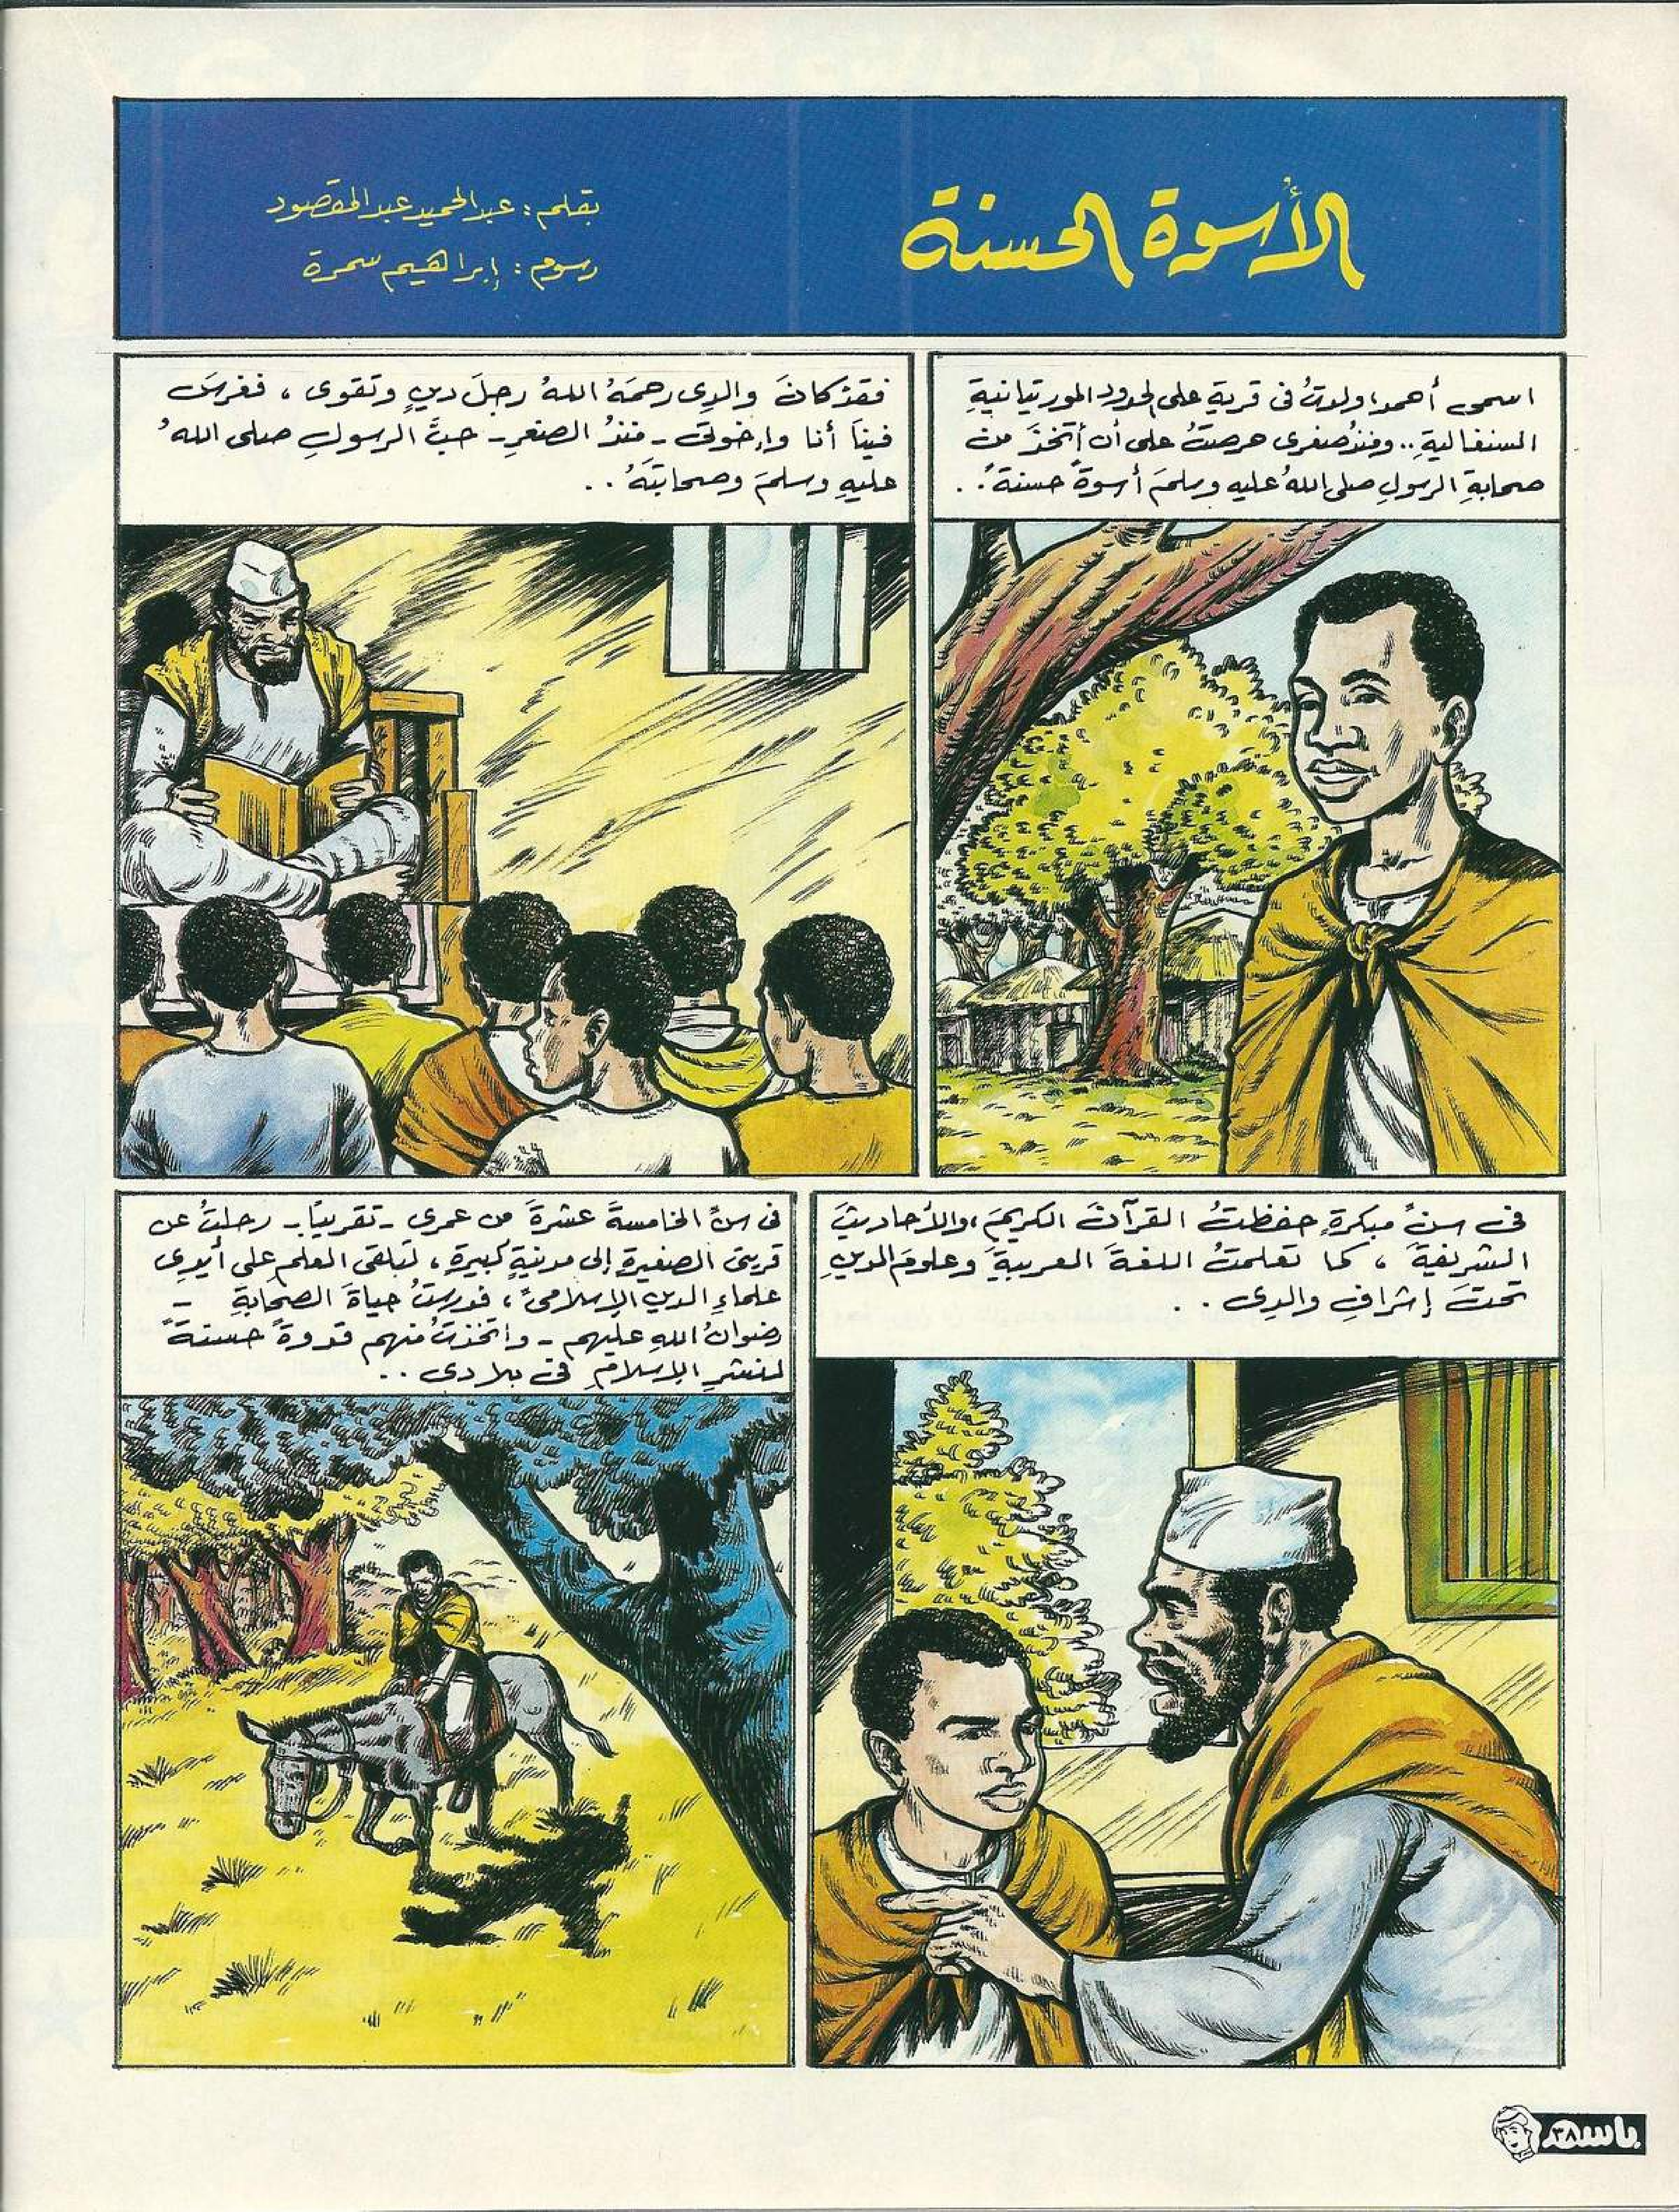 الأُسوة الحسنة
بقلم : عبدالحميد عبدالمقصود
رسوم : إبراهيم سمرة
اسمى أحمد، ولدتُ فى قريةٍ على الحدودِ الموريتانيةِ
السنغاليةِ .. ومنذُ صغرى حرصتُ على أن أتخذَ من
صحابةِ الرسولِ صلى اللهُ عليه وسلمَ أسوةً حسنةً . .
فقدْ كانَ والدِى رحمَهُ اللهُ رجلَ دينٍ وتقوى ، فغرسَ
فينَا أنا وإخوتى - منذُ الصغرِ - حبَّ الرسولِ صلى اللهُ
عليهِ وسلمَ وصحابتَهُ . .
فى سنٍّ مبكرةٍ حفظتُ القرآنَ الكريمَ ، والأحاديثَ
الشريفةَ ، كما تعلمتُ اللغةَ العربيةَ وعلومَ الدينِ
تحتَ إشرافِ والدِى . .
فى سنِّ الخامسةَ عشرةَ من عمرى - تقريبًا - رحلتُ عن
قريتى الصغيرةِ إلى مدينةٍ كبيرةٍ ، لتلقى العلمِ على أيدِى
علماءِ الدينِ الإسلامىِّ ، فدرستُ حياةَ الصحابةِ -
رضوانُ اللهِ عليهم - واتخذتُ منهم قدوةً حسنةً
لنشرِ الإسلامِ فى بلادى . .
باسم
٣٨